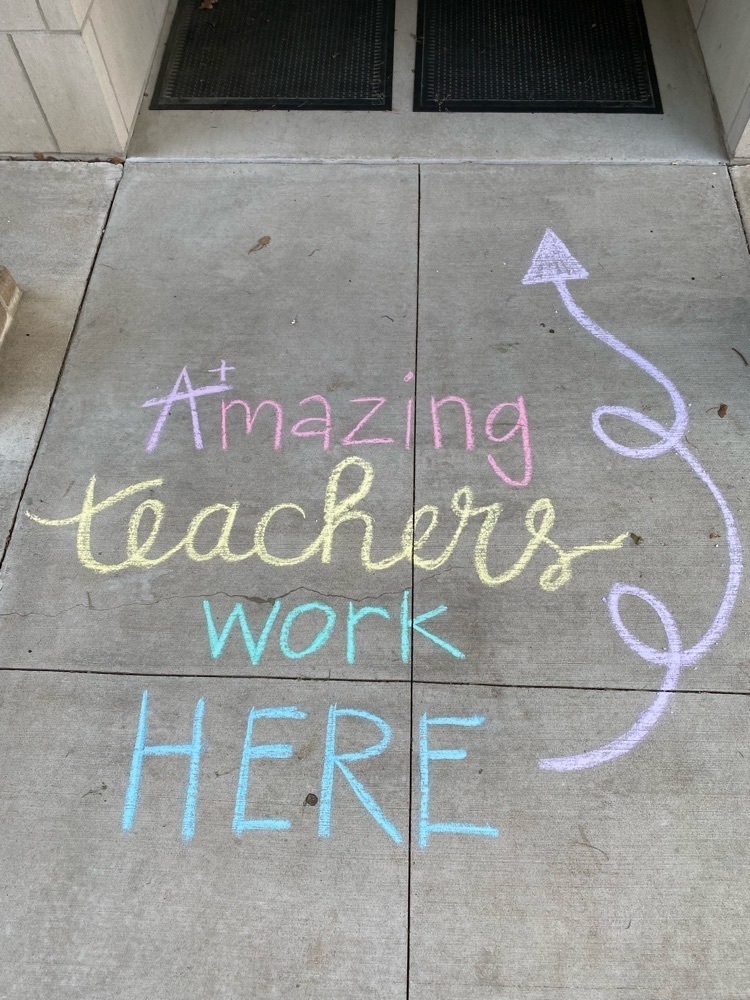 A+mazing
teachers
work
HERE